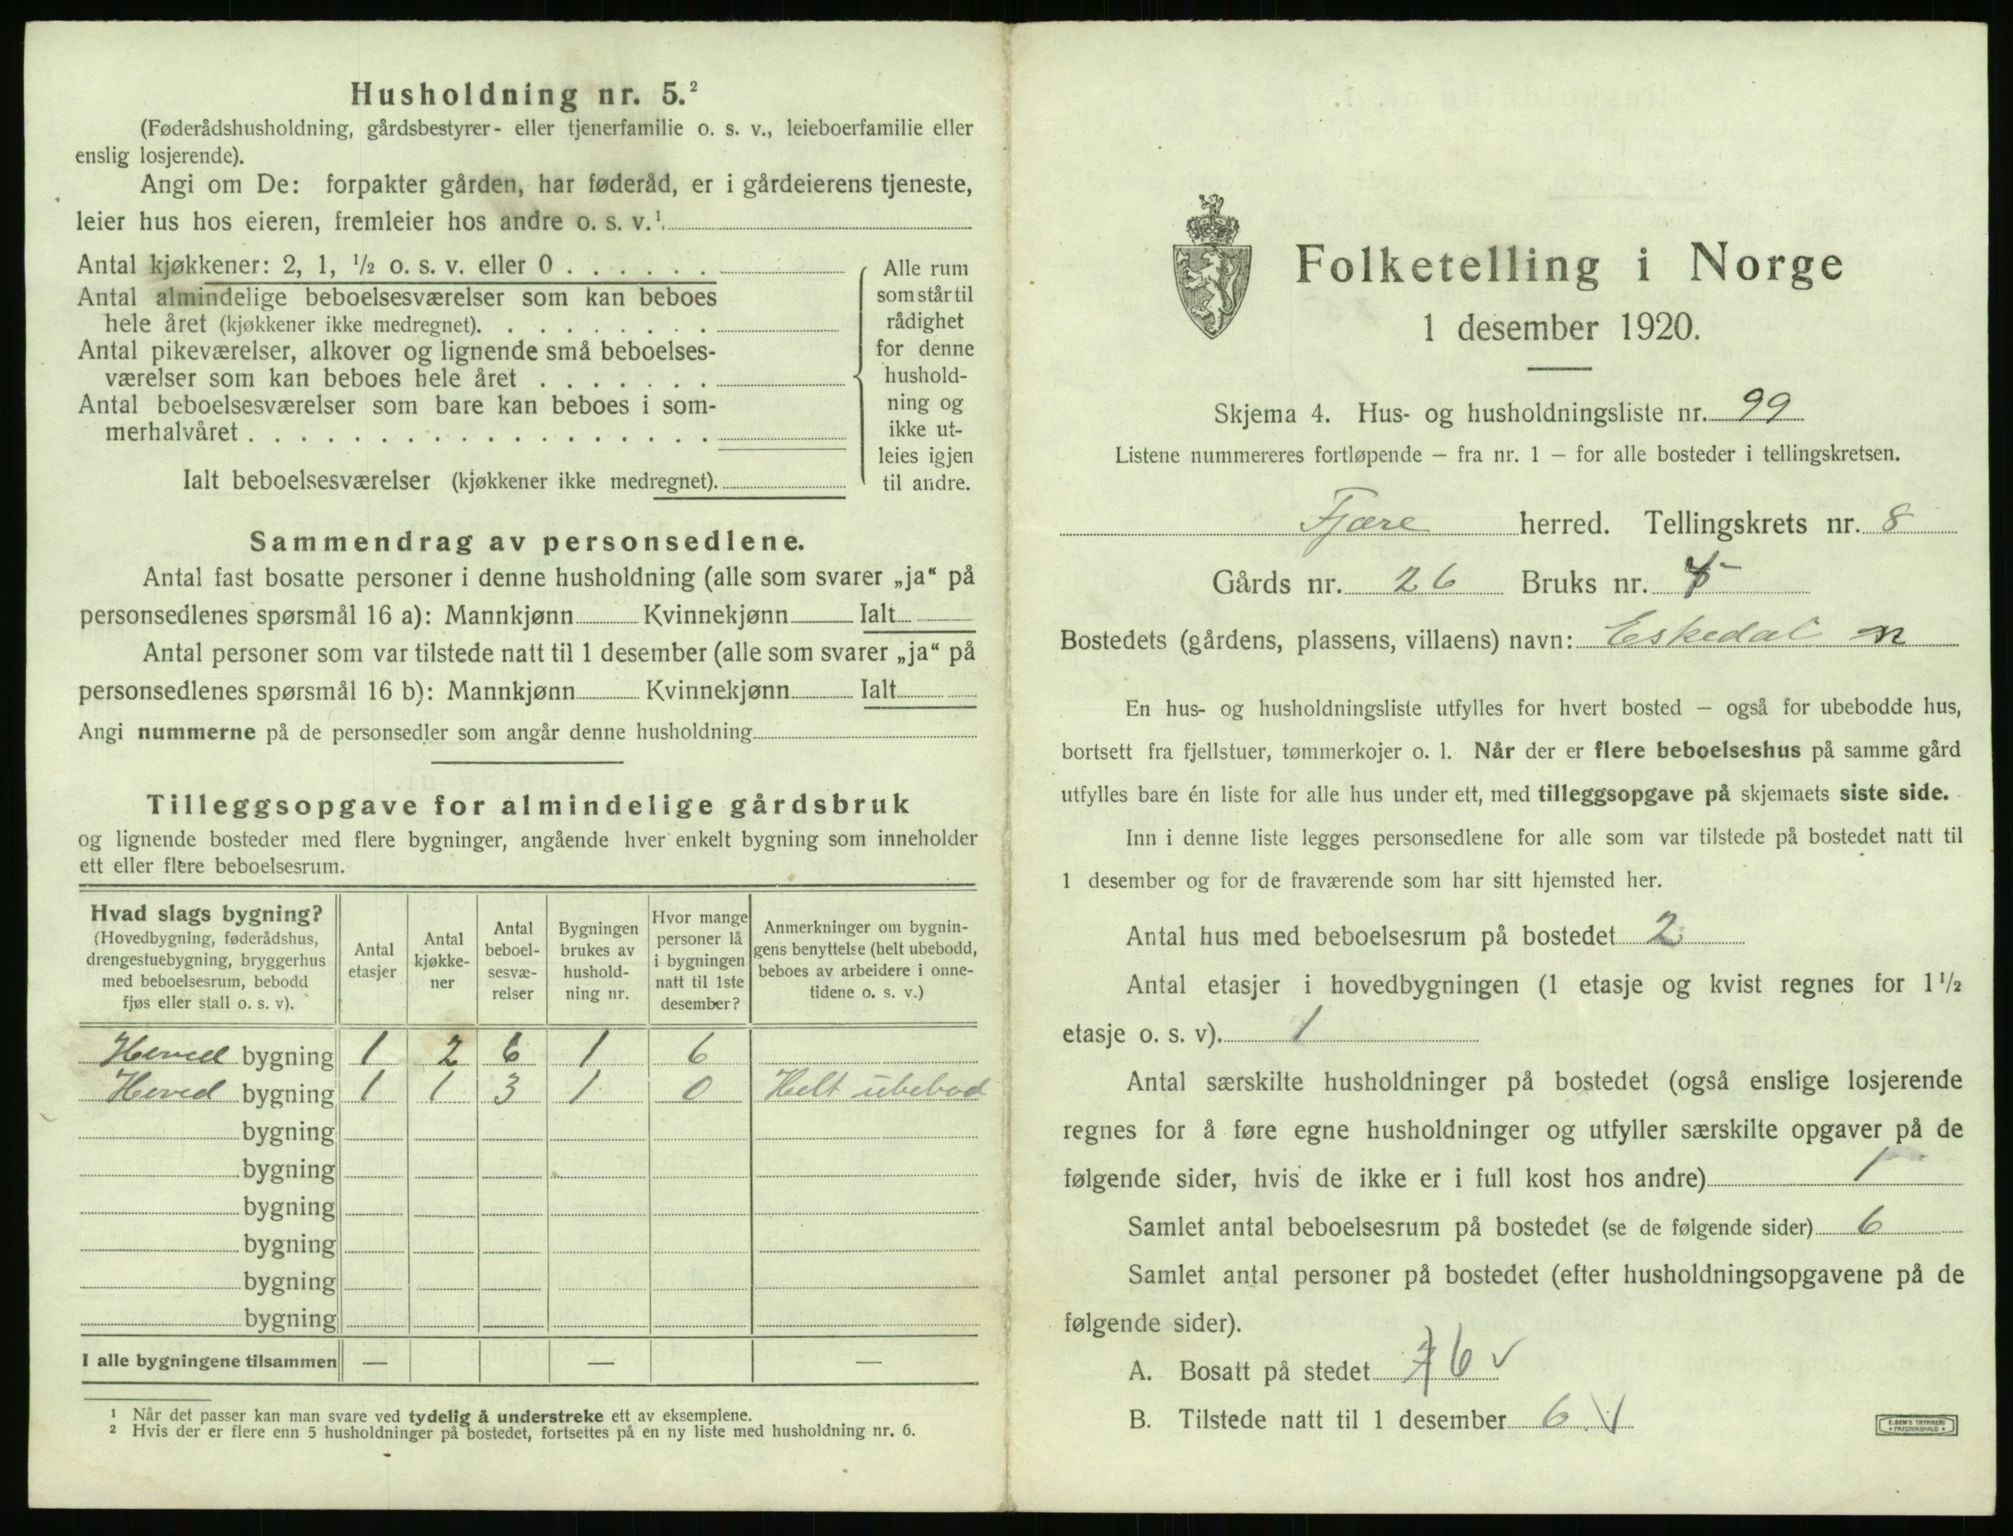 Husholdning nr. 5.²
(Føderådshusholdning, gårdsbestyrer- eller tjenerfamilie o. s. v., leieboerfamilie eller
enslig losjerende).
Angi om De: forpakter gården, har føderåd, er i gårdeierens tjeneste,
leier hus hos eieren, fremleier hos andre o. s. v.¹
Antal kjøkkener: 2, 1, ½ o. s. v. eller 0 . . . . . .
Antal almindelige beboelsesværelser som kan beboes
hele året (kjøkkener ikke medregnet). . . . . . . . .
Antal pikeværelser, alkover og lignende små beboelses-
værelser som kan beboes hele året . . . . . . .
Antal beboelsesværelser som bare kan beboes i som-
merhalvåret . . . . . . . . . . . . . . . . . .
Ialt beboelsesværelser (kjøkkener ikke medregnet).
Alle rum
som står til
rådighet
for denne
hushold-
ning og
ikke ut-
leies igjen
til andre.
Sammendrag av personsedlene.
Antal fast bosatte personer i denne husholdning (alle som svarer „ja“ på
personsedlenes spørsmål 16 a): Mannkjønn Kvinnekjønn Ialt
Antal personer som var tilstede natt til 1 desember (alle som svarer „ja“ på
personsedlenes spørsmål 16 b): Mannkjønn Kvinnekjønn Ialt
Angi nummerne på de personsedler som angår denne husholdning
Tilleggsopgave for almindelige gårdsbruk
og lignende bosteder med flere bygninger, angående hver enkelt bygning som inneholder
ett eller flere beboelsesrum.
Hvad slags bygning?
(Hovedbygning, føderådshus,
drengestuebygning, bryggerhus
med beboelsesrum, bebodd
fjøs eller stall o. s. v).
Antal
etasjer
Antal
kjøkke-
ner
Antal
beboel-
sesvæ-
relser
Bygningen
brukes av
hushold-
ning nr.
Hvor mange
personer lå
i bygningen
natt til 1ste
desember?
Anmerkninger om bygnin-
gens benyttelse (helt ubebodd,
beboes av arbeidere i onne-
tidene o. s. v.)
Hoved bygning 1 2 6 1 6
Hoved bygning 1 1 3 1 0 Helt ubebod
bygning
bygning
bygning
bygning
bygning
bygning
I alle bygningene tilsammen — — —
¹ Når det passer kan man svare ved tydelig å understreke ett av eksemplene.
² Hvis der er flere enn 5 husholdninger på bostedet, fortsettes på en ny liste med husholdning nr. 6.
Folketelling i Norge
1 desember 1920.
Skjema 4. Hus- og husholdningsliste nr. 99
Listene nummereres fortløpende – fra nr. 1 – for alle bosteder i tellingskretsen.
Fjære herred. Tellingskrets nr. 8
Gårds nr. 26 Bruks nr.
Bostedets (gårdens, plassens, villaens) navn: Eskedal
En hus- og husholdningsliste utfylles for hvert bosted – også for ubebodde hus,
bortsett fra fjellstuer, tømmerkojer o. l. Når der er flere beboelseshus på samme gård
utfylles bare én liste for alle hus under ett, med tilleggsopgave på skjemaets siste side.
Inn i denne liste legges personsedlene for alle som var tilstede på bostedet natt til
1 desember og for de fraværende som har sitt hjemsted her.
Antal hus med beboelsesrum på bostedet 2
Antal etasjer i hovedbygningen (1 etasje og kvist regnes for 1½
etasje o. s. v). 1
Antal særskilte husholdninger på bostedet (også enslige losjerende
regnes for å føre egne husholdninger og utfyller særskilte opgaver på de
følgende sider, hvis de ikke er i full kost hos andre) 1
Samlet antal beboelsesrum på bostedet (se de følgende sider) 6
Samlet antal personer på bostedet (efter husholdningsopgavene på de
følgende sider).
A. Bosatt på stedet 6 ✓
B. Tilstede natt til 1 desember 6
E. SEM'S TRYKKERI
FREDRIKSHALD